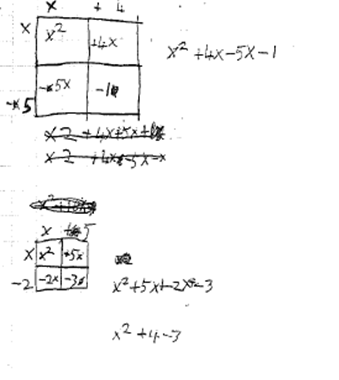 x + 4
x x² +4x
x² + 4x - 5x - 1
-5 -5x -1
x 2 + 4x + 5x +
x 2 + 4x - 5x - x
x + 5
x x² +5x
-2 -2x -3
x² + 5x + -2x - 3
x² + 4 - 3